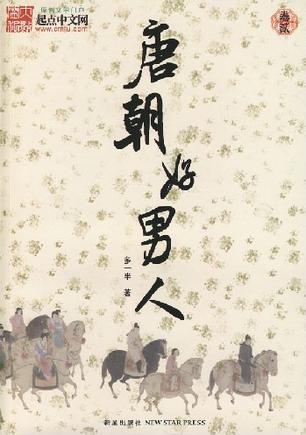 原创文学门户
起点中文网
www.cmfu.com
卷贰
唐朝好男人
多一半 著
新星出版社 NEW STAR PRESS